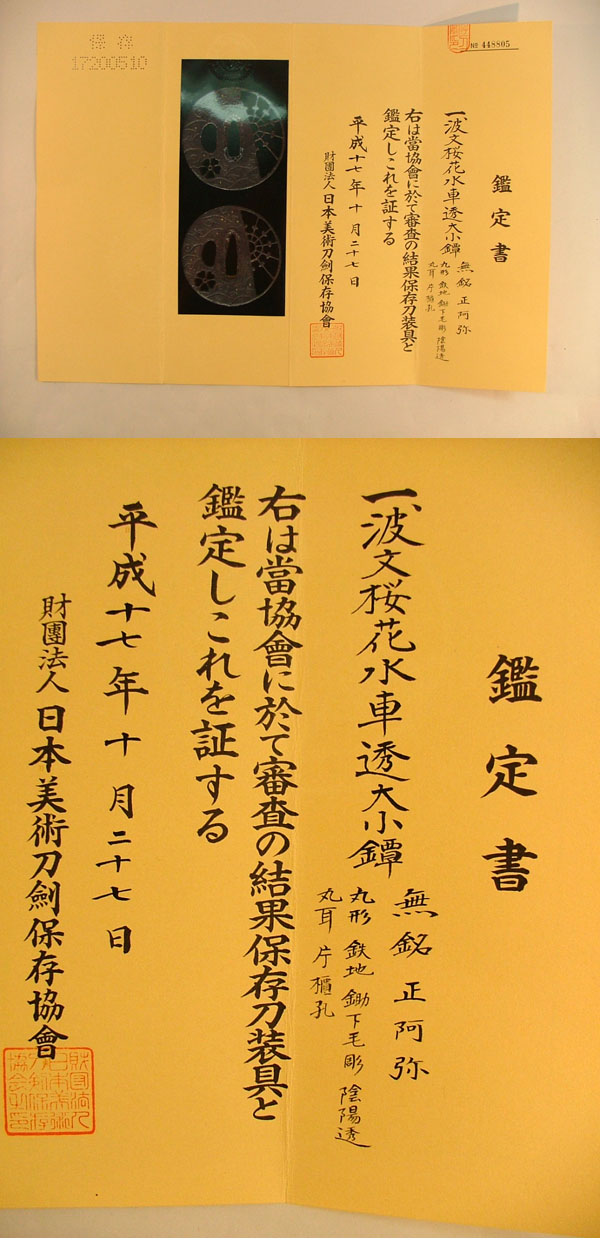 保存
17200510
№ 448805
鑑定書
一、波文桜花水車透大小鐔
無銘 正阿弥
丸形 鉄地 鋤下毛彫 陰陽透
丸耳 片櫃孔
右は當協會に於て審査の結果保存刀装具と
鑑定しこれを証する
平成十七年十月二十七日
財團法人 日本美術刀劍保存協會
鑑定書
一、波文桜花水車透大小鐔
無銘 正阿弥
丸形 鉄地 鋤下毛彫 陰陽透
丸耳 片櫃孔
右は當協會に於て審査の結果保存刀装具と
鑑定しこれを証する
平成十七年十月二十七日
財團法人 日本美術刀劍保存協會